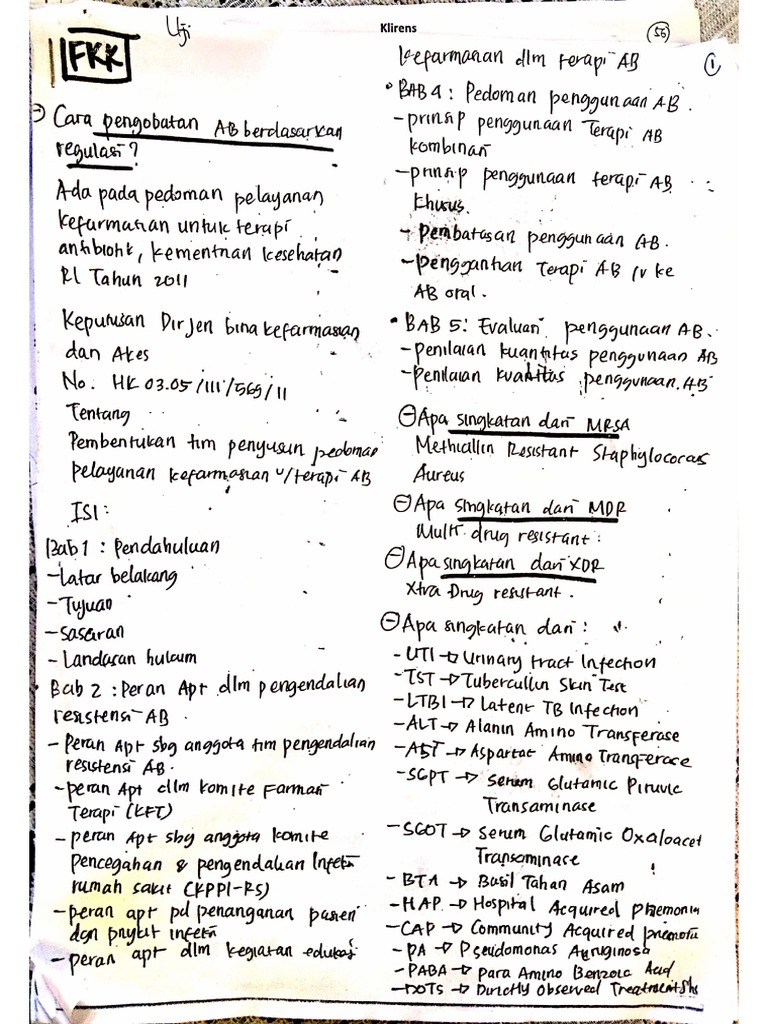 Uji
Klirens
56
FKK
1
Cara pengobatan AB berdasarkan
regulasi?
Ada pada pedoman pelayanan
kefarmasian untuk terapi
antibiotik, kementrian kesehatan
RI Tahun 2011
Keputusan Dirjen bina kefarmasian
dan Alkes
No. HK 03.05/III/569/11
Tentang
Pembentukan tim penyusun pedoman
pelayanan kefarmasian u/terapi AB
ISI:
Bab 1 : Pendahuluan
- Latar belakang
- Tujuan
- Sasaran
- Landasan hukum
Bab 2 : Peran Apt dlm pengendalian
resistensi AB.
- Peran Apt sbg anggota tim pengendalian
resistensi AB.
- peran Apt dlm komite Farmasi
Terapi (KFT)
- peran Apt sbg anggota komite
Pencegahan & pengendalian Infeksi
rumah sakit (KPPI-RS)
- peran apt pd penanganan pasien
dgn pnykit infeksi
- peran apt dlm kegiatan edukasi
kefarmasian dlm terapi AB
• BAB 4 : Pedoman penggunaan AB.
- prinsip penggunaan Terapi AB
kombinasi
- prinsip penggunaan terapi AB
khusus.
- Pembatasan penggunaan AB.
- Penggantian Terapi AB IV ke
AB oral.
• BAB 5 : Evaluasi penggunaan AB.
- penilaian kuantitas penggunaan AB
- Penilaian kualitas penggunaan AB
⊖ Apa singkatan dari MRSA
Methicillin Resistant Staphylococcus
Aureus
⊖ Apa singkatan dari MDR
Multi drug resistant :
⊖ Apa singkatan dari XDR
Xtra Drug resistant.
⊖ Apa singkatan dari :
- UTI → Urinary tract Infection
- TST → Tubercullin Skin Test
- LTBI → Latent TB Infection
- ALT → Alanin Amino Transferase
- AST → Aspartat Amino Transferase
- SGPT → Serum Glutamic Piruvic
Transaminase
- SGOT → Serum Glutamic Oxaloacet
Transaminase
- BTA → Basil Tahan Asam
- HAP → Hospital Acquired Pneumonia
- CAP → Community Acquired
- PA → Pseudomonas Aeruginosa
- PABA → Para Amino Benzoic Acid
- DOTS → Directly Observed Treatment Shs